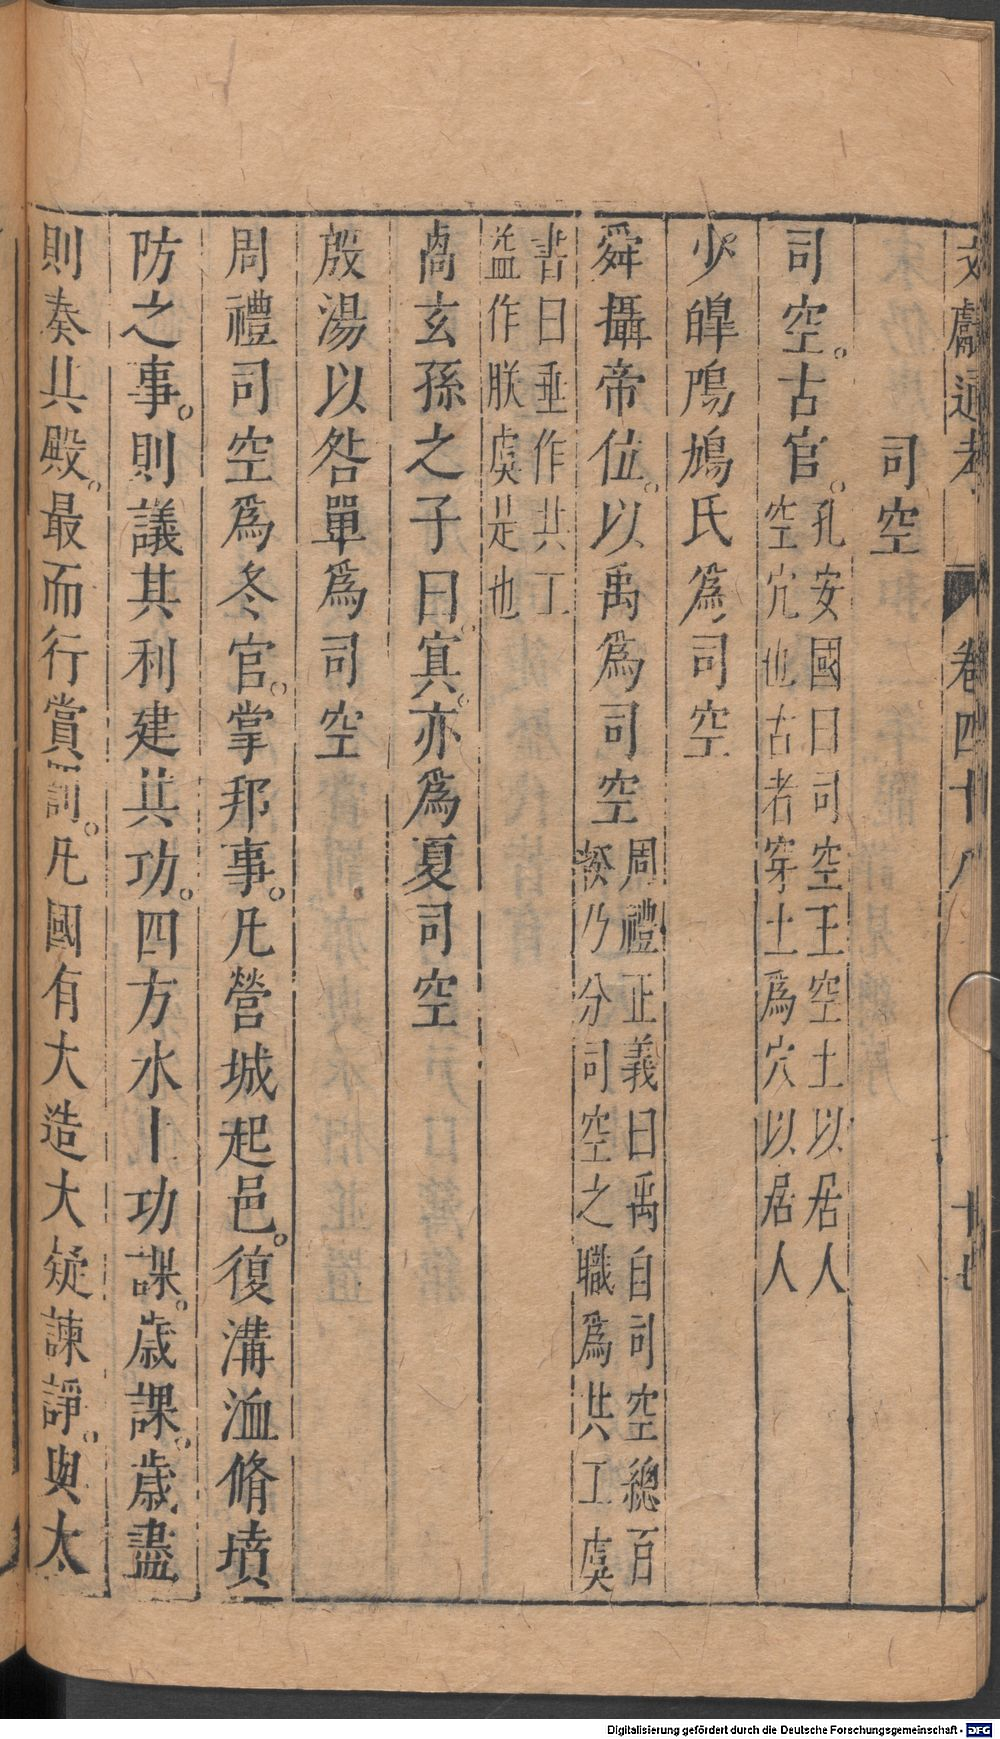 文獻通考 卷四十八 十七
司空
司空。古官。孔安國曰司空王空土以居人
空穴也古者穿土爲穴以居人
少皥鳲鳩氏爲司空
舜攝帝位。以禹爲司空周禮正義曰禹自司空總百
揆乃分司空之職爲共工虞
書曰垂作共工
益作朕虞是也
卨玄孫之子曰寘。亦爲夏司空
殷湯以咎單爲司空
周禮司空爲冬官。掌邦事。凡營城起邑。復溝洫脩墳
防之事。則議其利建其功。四方水土功課。歲課。歲盡
則奏其殿。最而行賞罰。凡國有大造大疑諫諍。與太
Digitalisierung gefördert durch die Deutsche Forschungsgemeinschaft - DFG